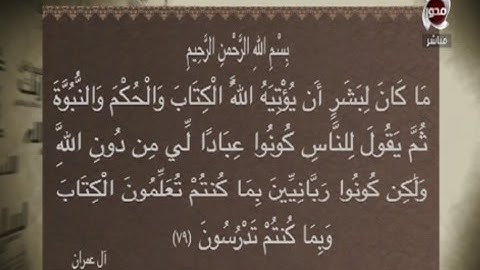 محور
مباشر
بِسْمِ اللهِ الرَّحْمنِ الرَّحِيمِ
مَا كَانَ لِبَشَرٍ أَن يُؤْتِيَهُ اللهُ الْكِتَابَ وَالْحُكْمَ وَالنُّبُوَّةَ
ثُمَّ يَقُولَ لِلنَّاسِ كُونُوا عِبَادًا لِّي مِن دُونِ اللهِ
وَلَكِن كُونُوا رَبَّانِيِّينَ بِمَا كُنتُمْ تُعَلِّمُونَ الْكِتَابَ
وَبِمَا كُنتُمْ تَدْرُسُونَ (٧٩)
آل عمران